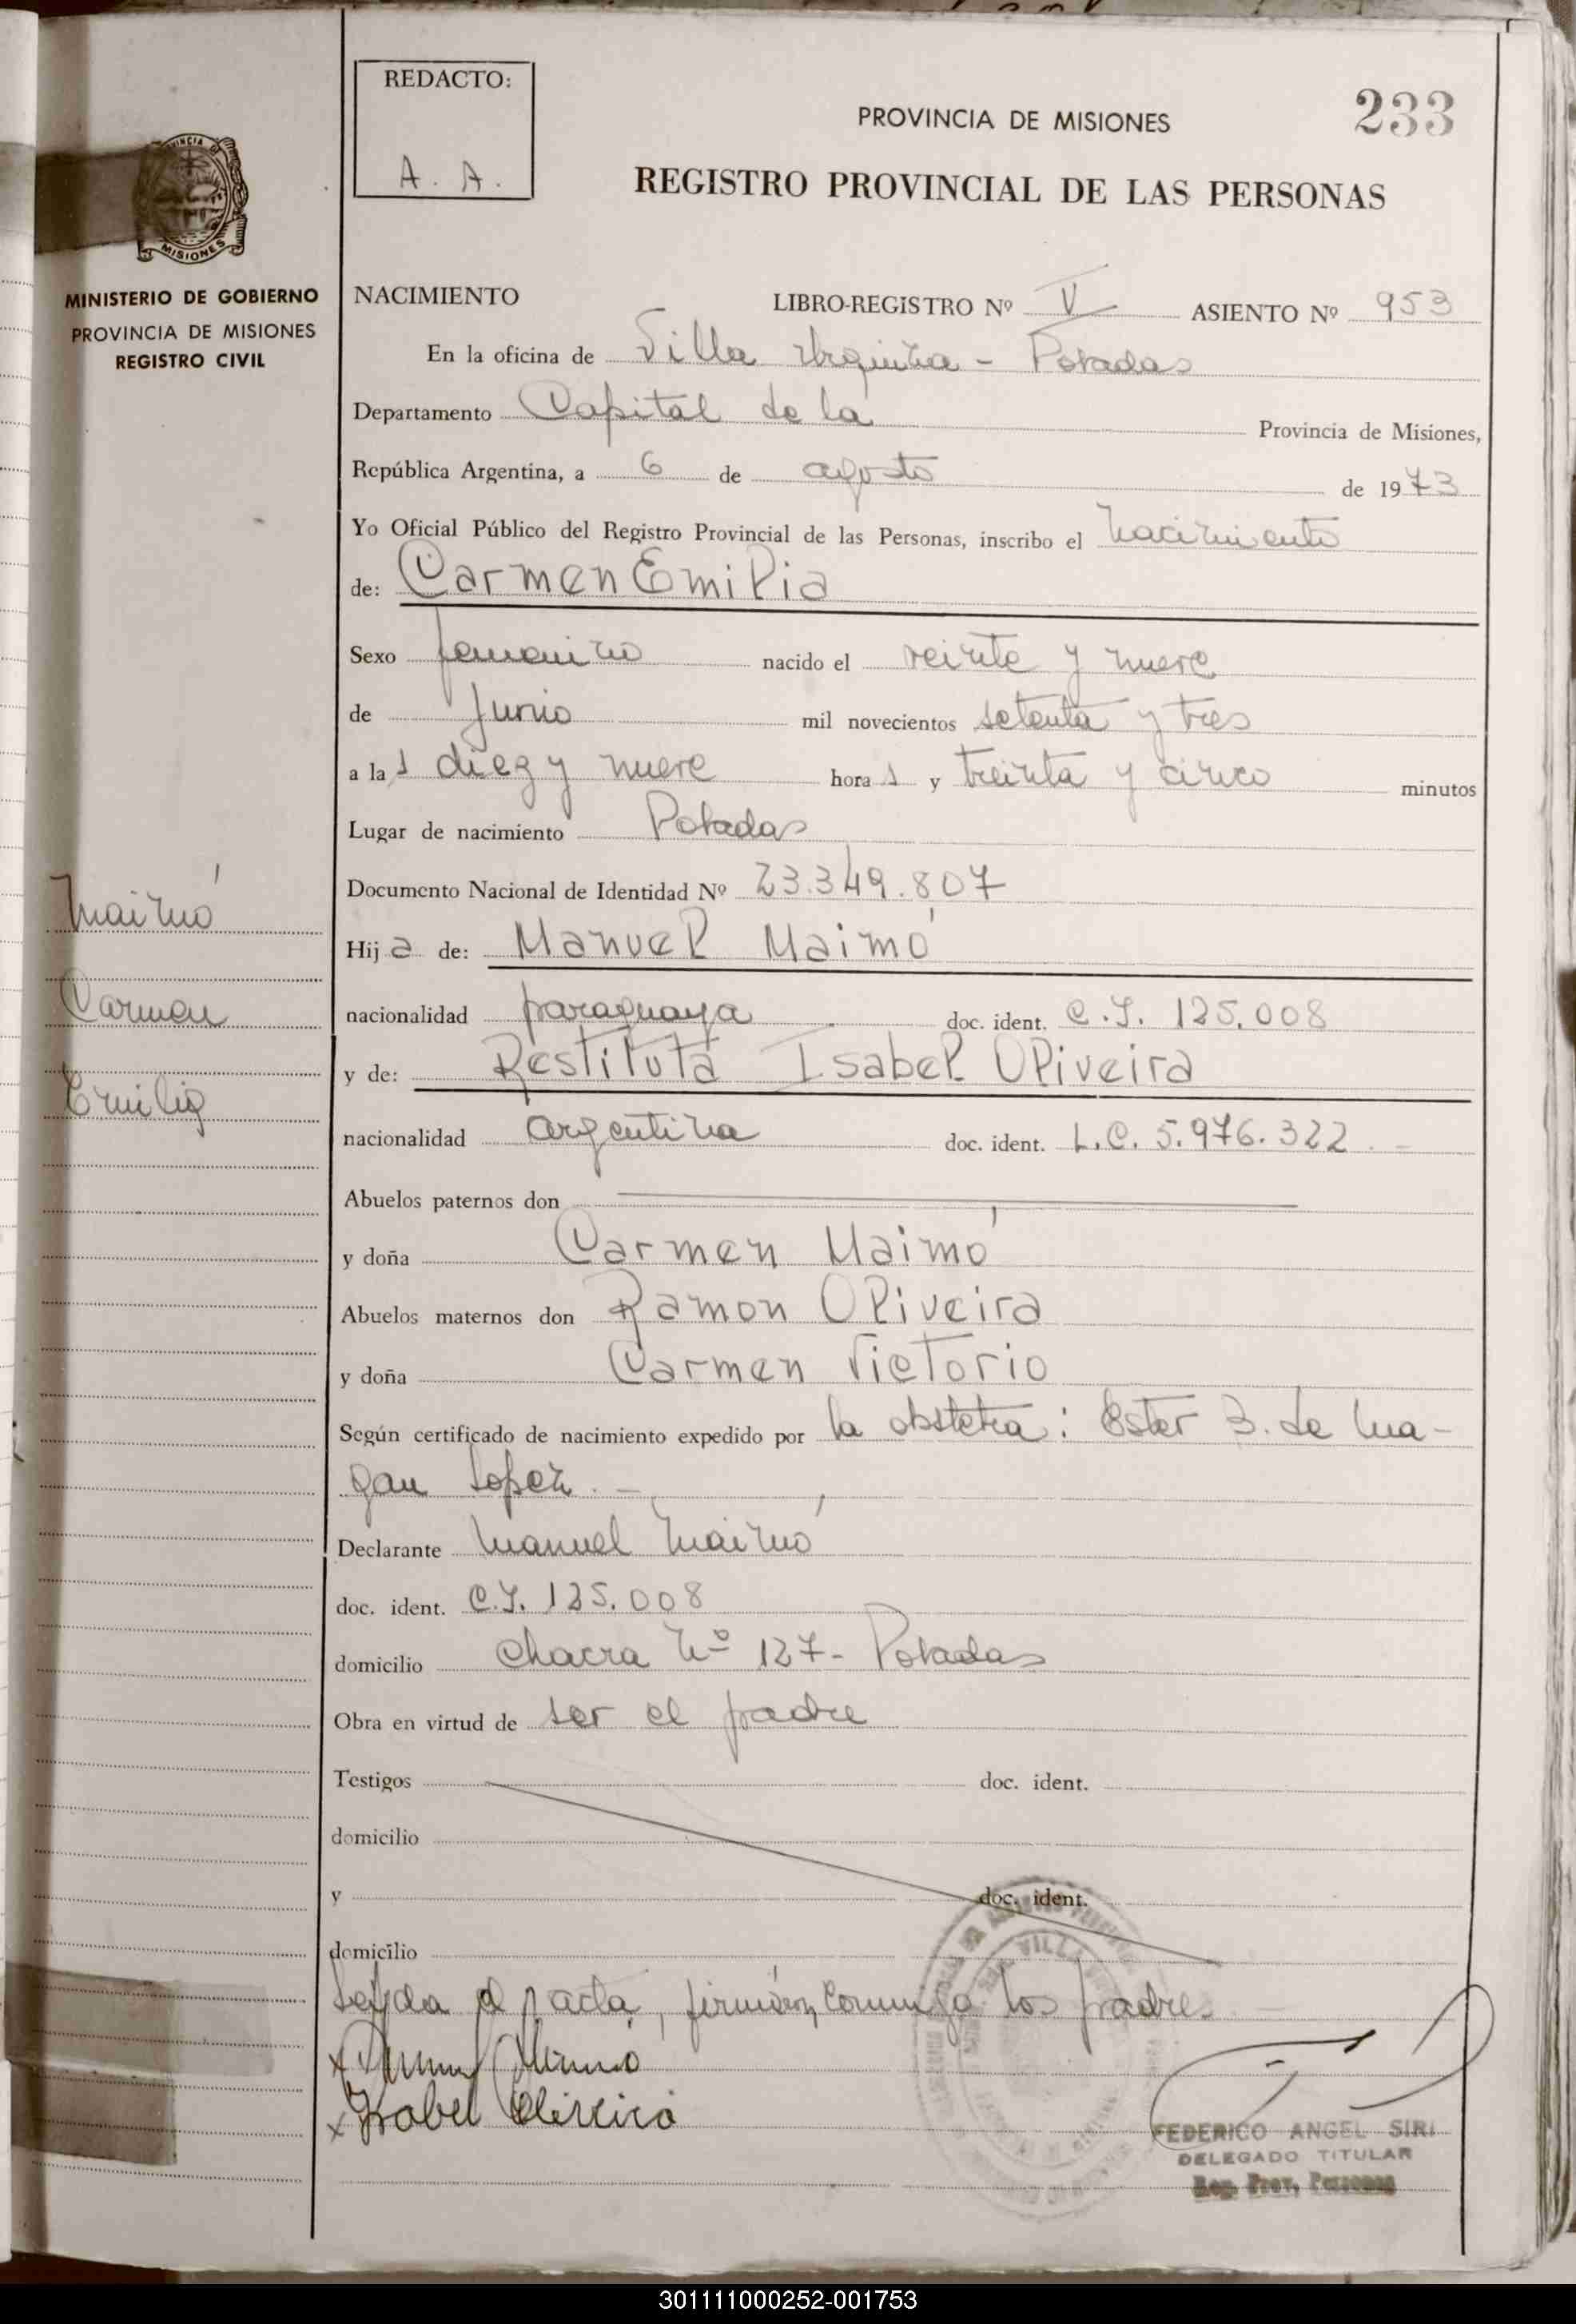 REDACTO:
A. A.
PROVINCIA DE MISIONES
233
REGISTRO PROVINCIAL DE LAS PERSONAS
PROVINCIA DE
MISIONES
MINISTERIO DE GOBIERNO
PROVINCIA DE MISIONES
REGISTRO CIVIL
NACIMIENTO LIBRO-REGISTRO Nº V ASIENTO Nº 953
En la oficina de Villa Urquiza - Posadas
Departamento Capital de la Provincia de Misiones,
República Argentina, a 6 de agosto de 1973
Yo Oficial Público del Registro Provincial de las Personas, inscribo el nacimiento
de: Carmen Emilia
Sexo femenino nacido el veinte y nueve
de Junio mil novecientos setenta y tres
a las diez y nueve horas y treinta y cinco minutos
Lugar de nacimiento Posadas
Documento Nacional de Identidad Nº 23.349.807
Maimó
Hija de: Manuel Maimó
Carmen
nacionalidad paraguaya doc. ident. C.I. 125.008
y de: Restituta Isabel Oliveira
Emilia
nacionalidad argentina doc. ident. L.C. 5.976.322
Abuelos paternos don
y doña Carmen Maimó
Abuelos maternos don Ramon Oliveira
y doña Carmen Victorio
Según certificado de nacimiento expedido por la obstetra: Ester B. de Ma-
gan Lopez. -
Declarante Manuel Maimó
doc. ident. C.I. 125.008
domicilio Chacra Nº 127 - Posadas
Obra en virtud de ser el padre
Testigos doc. ident.
domicilio
y doc. ident.
domicilio
Leída el acta, firman conmigo los padres
x Manuel Maimó
x Isabel Oliveira
VILLA
FEDERICO ANGEL SIRI
DELEGADO TITULAR
Reg. Prov. Personas
301111000252-001753